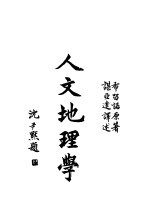 布留諾原著
諶亞達譯述
人文地理學
沈尹默題